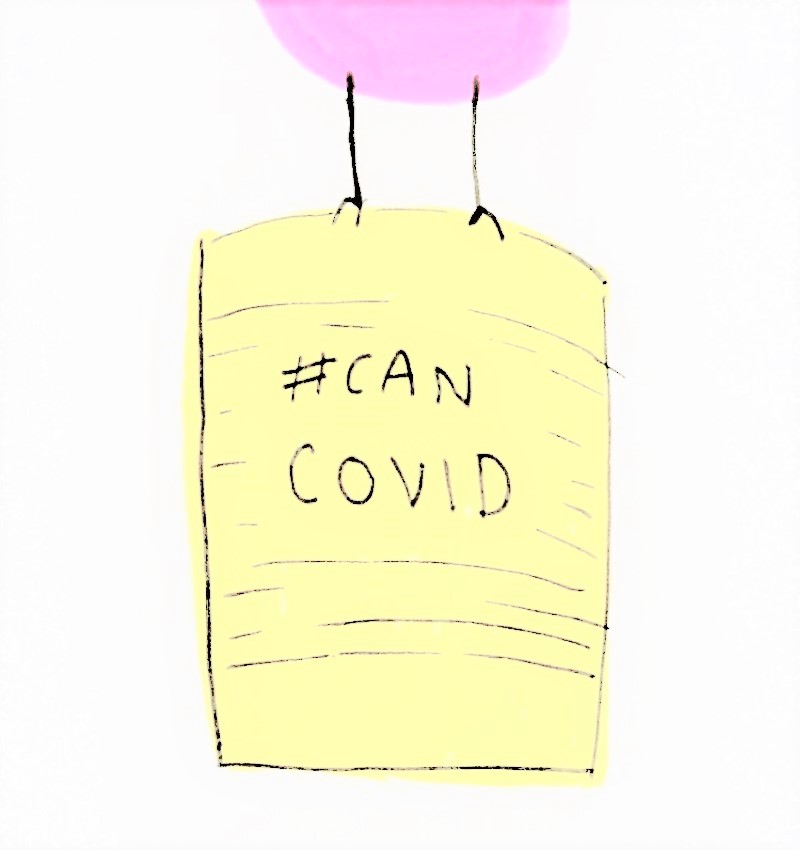 #CAN
COVID